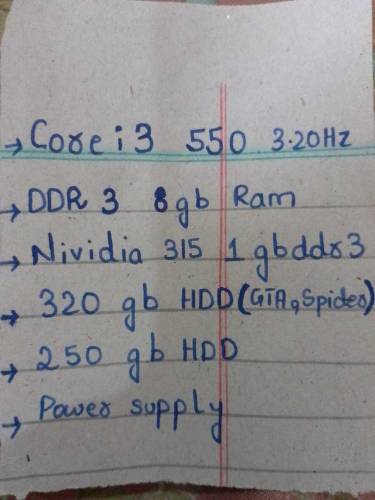 → Core i3 550 3.20Hz
→ DDR 3 8gb Ram
→ Nividia 315 1gbddr3
→ 320 gb HDD(GTA,Spider)
→ 250 gb HDD
→ Power supply